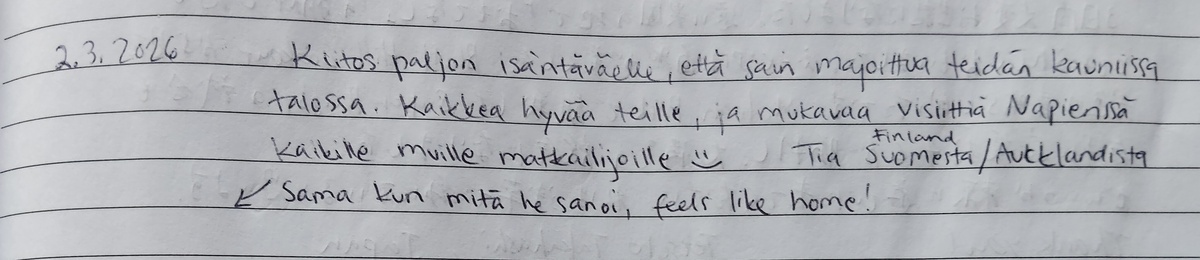 2.3.2026 Kiitos paljon isäntäväelle, että sain majoittua teidän kauniissa
talossa. Kaikkea hyvää teille, ja mukavaa visiittiä Napierissä
Finland
kaikille muille matkailijoille :) Tia Suomesta/Aucklandista
↙ Sama kun mitä he sanoi, feels like home!